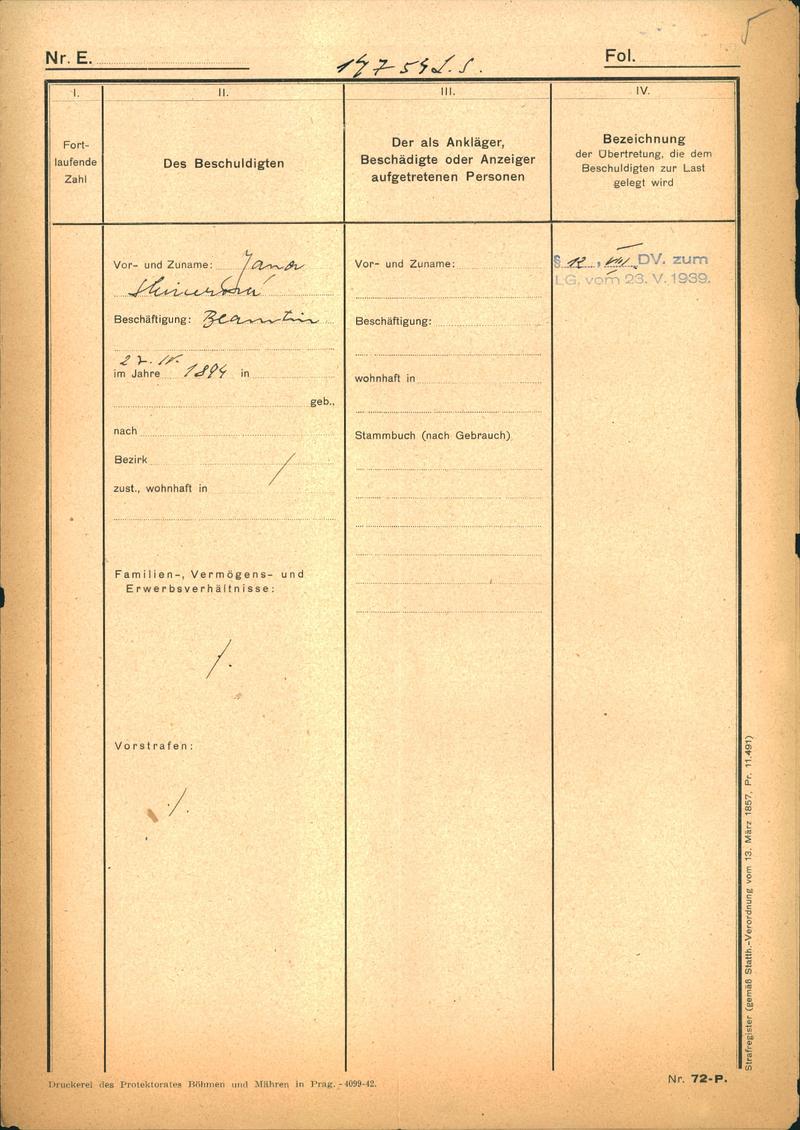 Nr. E.
Fol.
I.
II.
III.
IV.
Fort-
laufende
Zahl
Des Beschuldigten
Der als Ankläger,
Beschädigte oder Anzeiger
aufgetretenen Personen
Bezeichnung
der Übertretung, die dem
Beschuldigten zur Last
gelegt wird
Vor- und Zuname: Jana
Beschäftigung: Beamtin
27. IV.
im Jahre 1894 in
geb.,
nach
Bezirk /
zust., wohnhaft in
Familien-, Vermögens- und
Erwerbsverhältnisse:
/.
Vorstrafen:
/.
Vor- und Zuname:
Beschäftigung:
wohnhaft in
Stammbuch (nach Gebrauch)
§ 12, VIII. DV. zum
LG. vom 23. V. 1939.
Strafregister (gemäß Statth.-Verordnung vom 13. März 1857, Pr. 11.491)
Druckerei des Protektorates Böhmen und Mähren in Prag. - 4099-42.
Nr. 72-P.